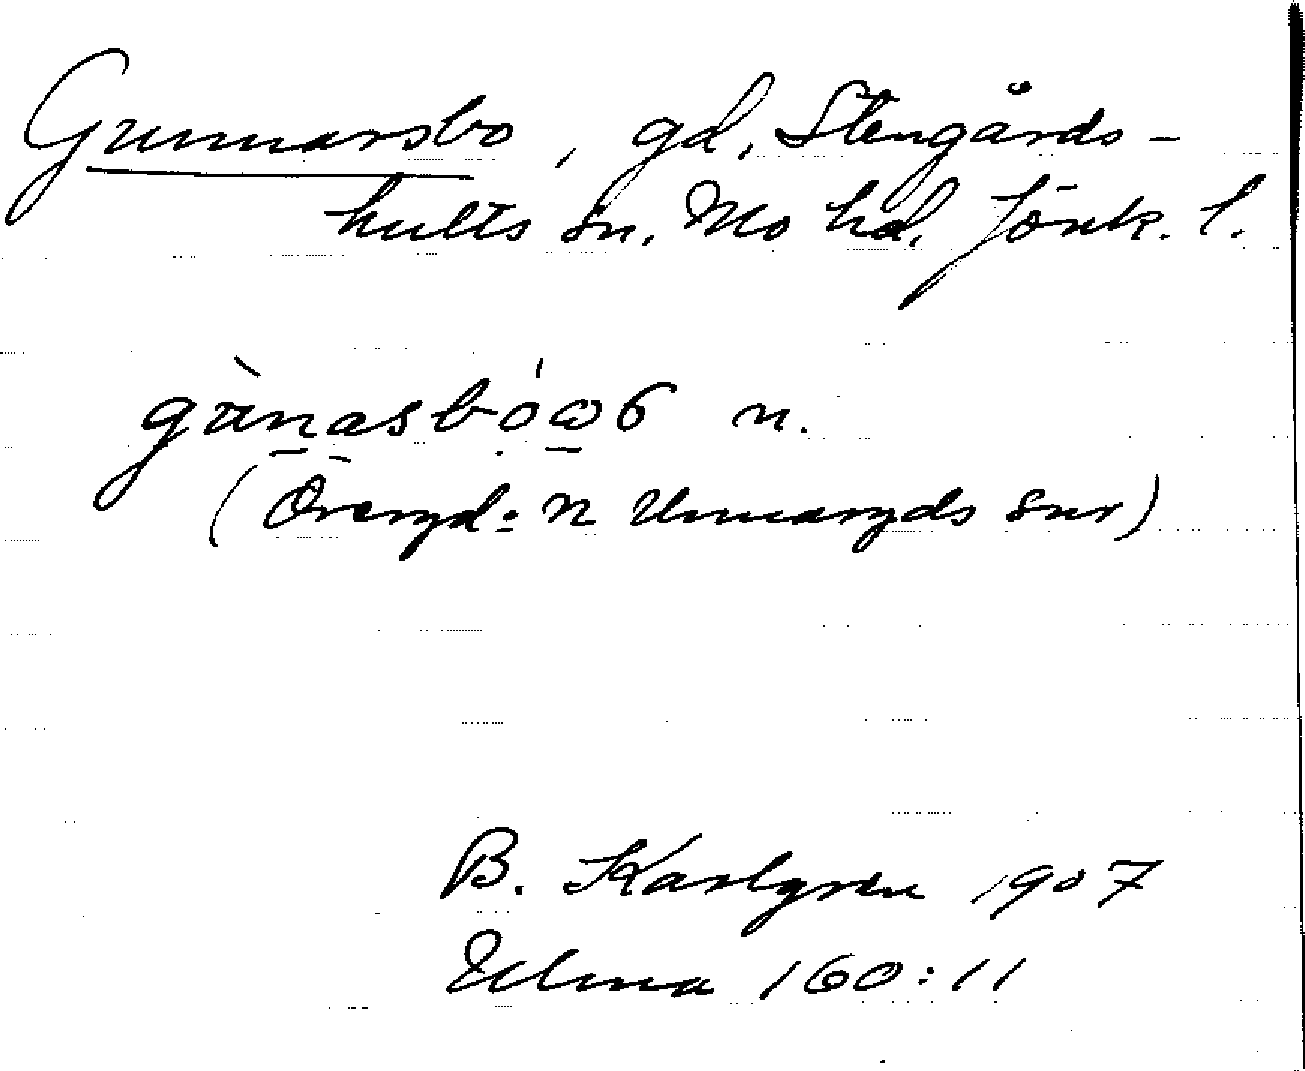 Gunnarsbo, gd, Stengårds-
hults sn. Mo hd. Jönk. l.
n.
(Öreryd- n Unnaryds snr)
B. Karlgren 1907
Ulma 160:11